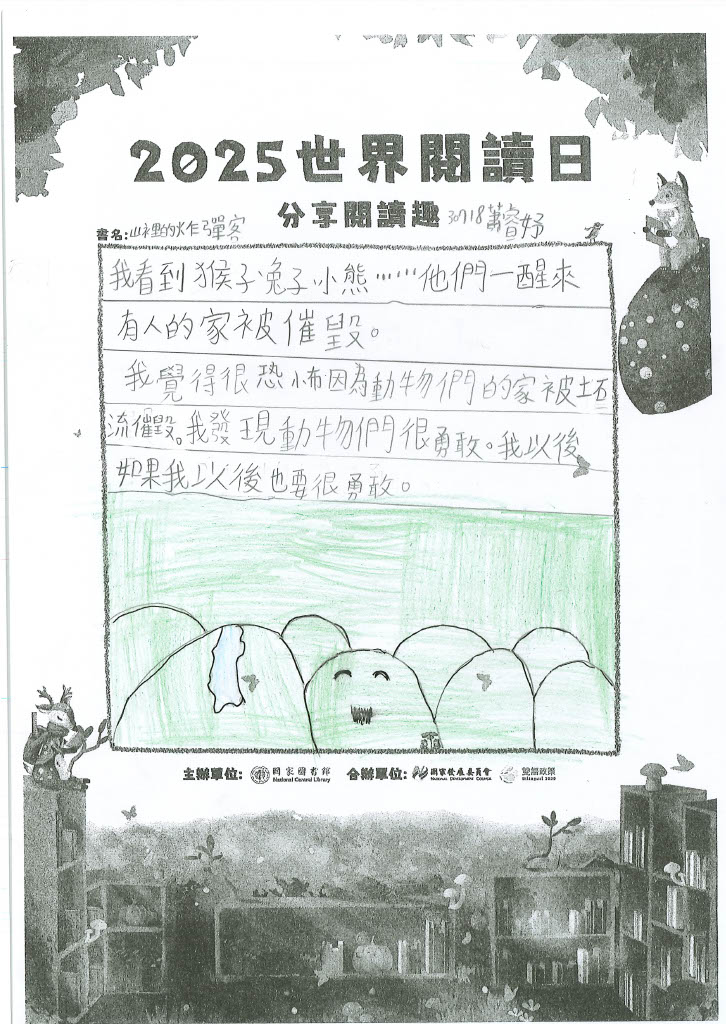 2025世界閱讀日
分享閱讀趣
30718蕭睿妤
書名:山裡的水炸彈客
我看到猴子兔子小熊……他們一醒來
有人的家被催毀。
我覺得很恐怖因為動物們的家被土石
流催毀。我發現動物們很勇敢。我以後
如果我以後也要很勇敢。
主辦單位: 國家圖書館 National Central Library 合辦單位: 國家發展委員會 NATIONAL DEVELOPMENT COUNCIL 雙語政策 Bilingual 2030